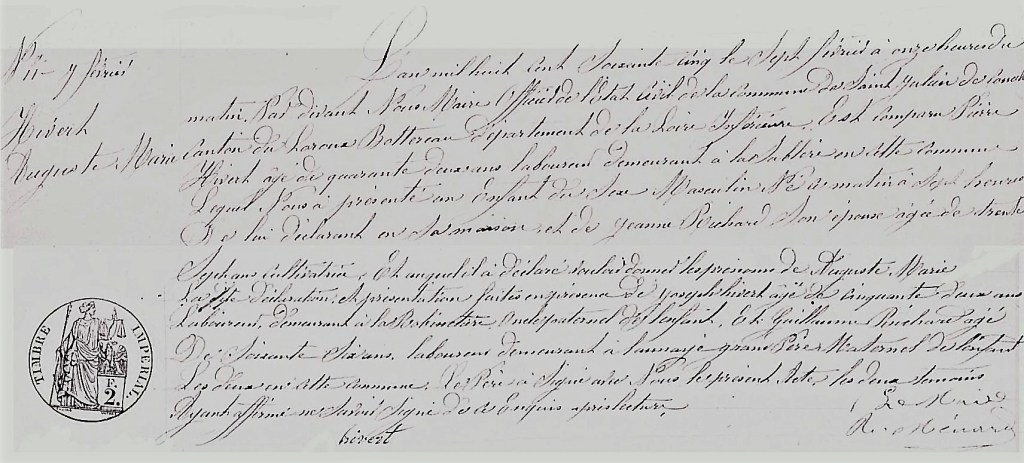 N° 11 7 février
Hivert
Auguste Marie
L'an mil huit cent Soixante cinq le Sept février à onze heures du
matin, Par devant Nous Maire Officier de l'État Civil de la Commune de Saint Julien de Concelles
Canton du Loroux Bottereau département de la Loire Inférieure, Est comparu Pierre
Hivert âgé de quarante deux ans laboureur demeurant à la Sablère en cette commune
Lequel Nous à présenté un Enfant du Sexe Masculin Né ce matin à Sept heures
De lui déclarant en Sa maison, et de Jeanne Richard Son épouse âgée de trente
Sept ans Cultivatrice, Et auquel il à déclaré vouloir donner les prénoms de Auguste Marie
La dite déclaration et présentation faites en présence De Joseph hivert âgé de cinquante deux ans
Laboureur, demeurant à la Oncle paternel de l'enfant, Et Guillaume Richard âgé
De Soixante Six ans, laboureur demeurant à grand Père Maternel de l'enfant
Les deux en cette commune, Le Père à Signé avec Nous le présent Acte, les deux témoins
Ayant affirmé ne Savoir Signé de ce Enquis après lecture,
hivert
Le Maire
R. Ménard
TIMBRE IMPÉRIAL
F.
2.